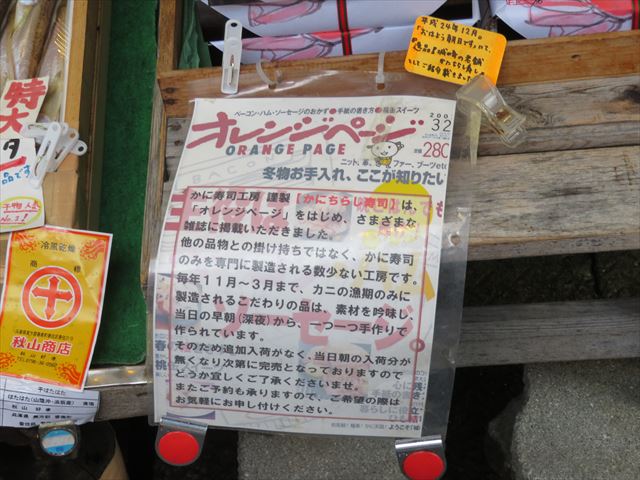 平成24年12月。
「おはよう朝日です」にて、
「逸品!城崎の老舗
かにちらし寿し」
としてご紹介されました!
ベーコン・ハム・ソーセージのおかず●手紙の書き方●
スイーツ
オレンジページ
ORANGE PAGE
200
3 2
280
ニット、革、ファー、ブーツetc
冬物お手入れ、ここが知りたい
かに寿司工房 謹製【かにちらし寿司】は、
「オレンジページ」をはじめ、さまざまな
雑誌に掲載いただきました。
他の品物との掛け持ちではなく、かに寿司
のみを専門に製造される数少ない工房です。
毎年11月~3月まで、カニの漁期のみに
製造されるこだわりの品は、素材を吟味し、
当日の早朝(深夜)から、一つ一つ手作りで
作られています。
そのため追加入荷がなく、当日朝の入荷分が
無くなり次第に完売となっておりますので
どうか宜しくご了承くださいませ。
またご予約も承りますので、ご希望の際は
お気軽にお申し付けください。
特
大
干物人気
No.1!
冷風乾燥
商標
秋山商店
秋山商店